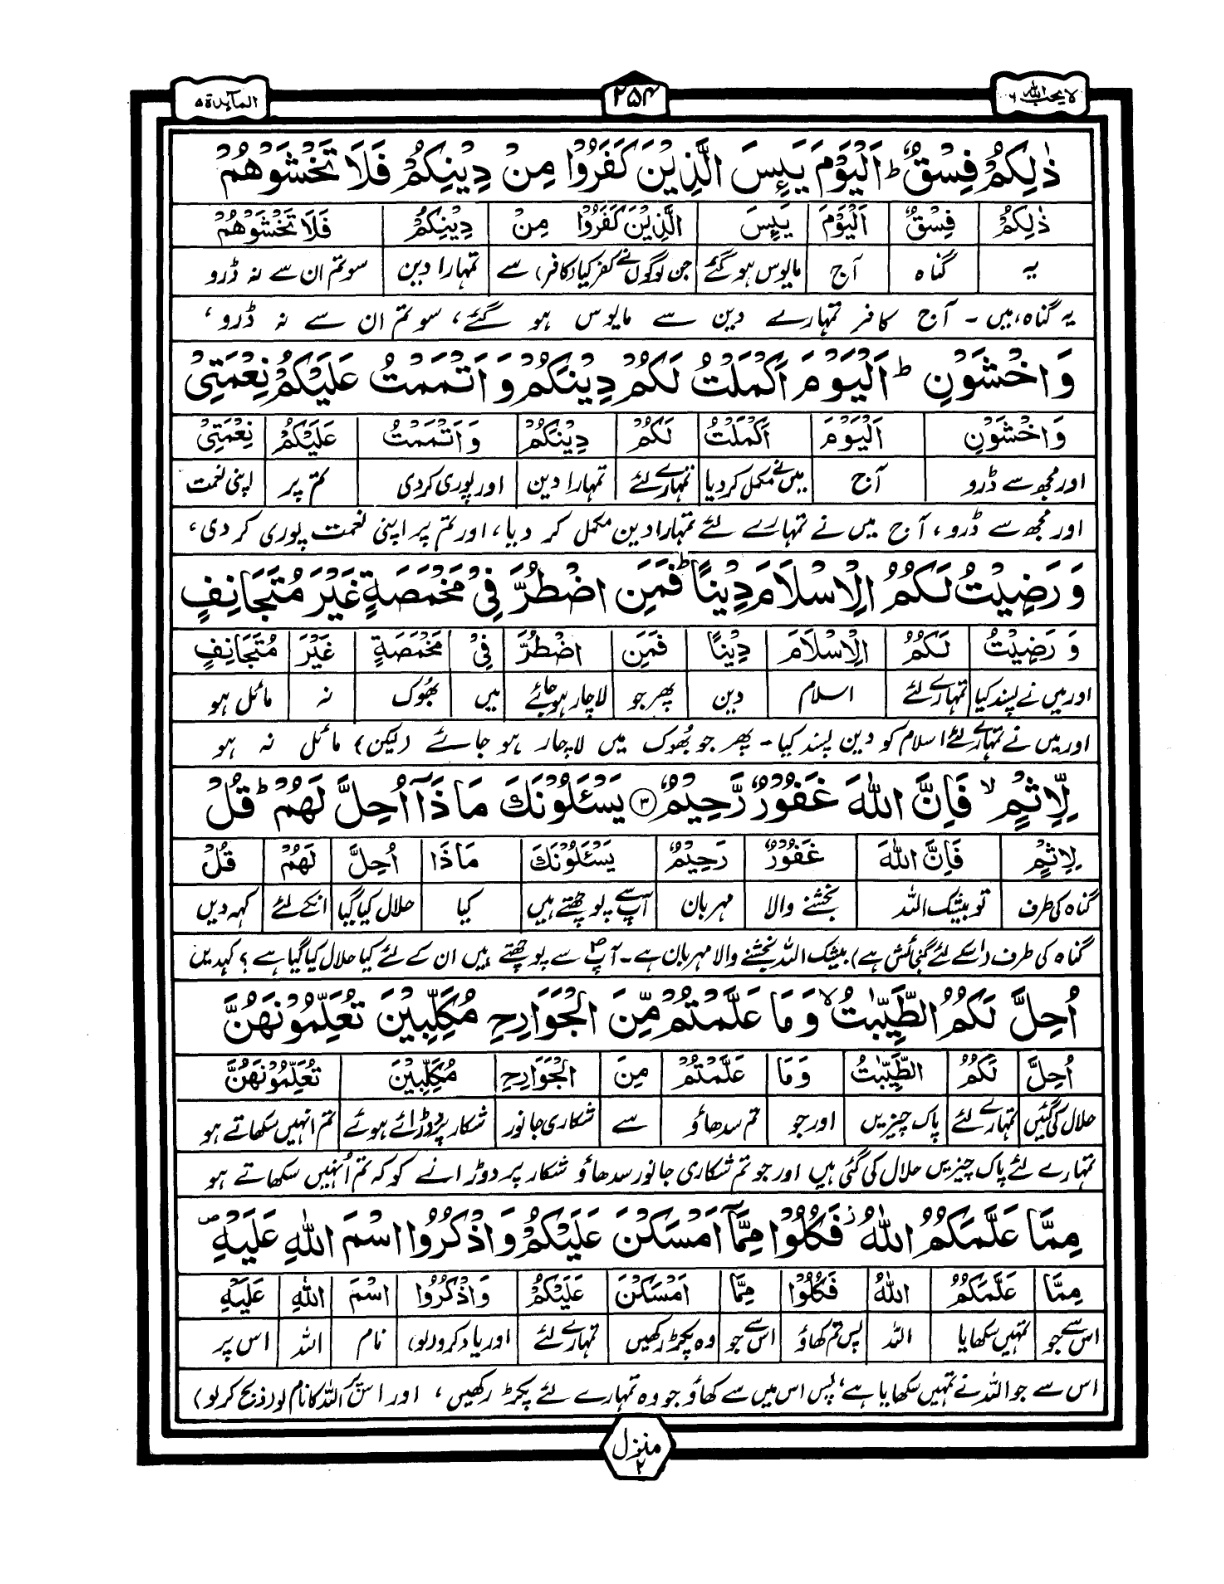 لا یحب اللہ ۶
۲۵۴
المآىِٕدۃ ۵
ذٰلِكُمْ فِسْقٌ ؕ اَلْیَوْمَ یَىِٕسَ الَّذِیْنَ كَفَرُوْا مِنْ دِیْنِكُمْ فَلَا تَخْشَوْهُمْ
ذٰلِكُمْ فِسْقٌ اَلْیَوْمَ یَىِٕسَ الَّذِیْنَ كَفَرُوْا مِنْ دِیْنِكُمْ فَلَا تَخْشَوْهُمْ
یہ گناہ آج مایوس ہوگئے جن لوگوں نے کفر کیا (کافر) سے تمہارا دین سو تم ان سے نہ ڈرو
یہ گناہ ہیں ۔ آج کافر تمہارے دین سے مایوس ہو گئے، سو تم ان سے نہ ڈرو ،
وَ اخْشَوْنِ ؕ اَلْیَوْمَ اَكْمَلْتُ لَكُمْ دِیْنَكُمْ وَ اَتْمَمْتُ عَلَیْكُمْ نِعْمَتِیْ
وَ اخْشَوْنِ اَلْیَوْمَ اَكْمَلْتُ لَكُمْ دِیْنَكُمْ وَ اَتْمَمْتُ عَلَیْكُمْ نِعْمَتِیْ
اور مجھ سے ڈرو آج میں نے مکمل کر دیا تمہارے لئے تمہارا دین اور پوری کردی تم پر اپنی نعمت
اور مجھ سے ڈرو، آج میں نے تمہارے لئے تمہارا دین مکمل کر دیا، اور تم پر اپنی نعمت پوری کر دی،
وَ رَضِیْتُ لَكُمُ الْاِسْلَامَ دِیْنًا ؕ فَمَنِ اضْطُرَّ فِیْ مَخْمَصَةٍ غَیْرَ مُتَجَانِفٍ
وَ رَضِیْتُ لَكُمُ الْاِسْلَامَ دِیْنًا فَمَنِ اضْطُرَّ فِیْ مَخْمَصَةٍ غَیْرَ مُتَجَانِفٍ
اور میں نے پسند کیا تمہارے لئے اسلام دین پھر جو لاچار ہو جائے میں بھُوک نہ مائل ہو
اور میں نے تمہارے لئے اسلام کو دین پسند کیا ۔ پھر جو بھُوک میں لاچار ہو جائے (لیکن) مائل نہ ہو
لِّاِثْمٍ ۙ فَاِنَّ اللّٰهَ غَفُوْرٌ رَّحِیْمٌ ۝۳ یَسْـَٔلُوْنَكَ مَا ذَاۤ اُحِلَّ لَهُمْ ؕ قُلْ
لِاِثْمٍ فَاِنَّ اللّٰهَ غَفُوْرٌ رَحِیْمٌ یَسْـَٔلُوْنَكَ مَاذَا اُحِلَّ لَهُمْ قُلْ
گناہ کی طرف تو بیشک اللہ بخشنے والا مہربان آپ سے پوچھتے ہیں کیا حلال کیا گیا انکے لئے کہہ دیں
گناہ کی طرف (اسکے لئے گنجائش ہے) بیشک اللہ بخشنے والا مہربان ہے ۔ آپؐ سے پوچھتے ہیں ان کے لئے کیا حلال کیا گیا ہے ؟ کہدیں
اُحِلَّ لَكُمُ الطَّیِّبٰتُ ۙ وَ مَا عَلَّمْتُمْ مِّنَ الْجَوَارِحِ مُكَلِّبِیْنَ تُعَلِّمُوْنَهُنَّ
اُحِلَّ لَكُمُ الطَّیِّبٰتُ وَمَا عَلَّمْتُمْ مِنَ الْجَوَارِحِ مُكَلِّبِیْنَ تُعَلِّمُوْنَهُنَّ
حلال کی گئیں تمہارے لئے پاک چیزیں اور جو تم سدھاؤ سے شکاری جانور شکار پر دوڑائے ہوئے تم انہیں سکھاتے ہو
تمہارے لئے پاک چیزیں حلال کی گئی ہیں اور جو تم شکاری جانور سدھاؤ شکار پر دوڑانے کو کہ تم اُنہیں سکھاتے ہو
مِمَّا عَلَّمَكُمُ اللّٰهُ ؗ فَكُلُوْا مِمَّاۤ اَمْسَكْنَ عَلَیْكُمْ وَ اذْكُرُوا اسْمَ اللّٰهِ عَلَیْهِ ۪
مِمَّا عَلَّمَكُمُ اللّٰهُ فَكُلُوْا مِمَّا اَمْسَكْنَ عَلَیْكُمْ وَ اذْكُرُوا اسْمَ اللّٰهِ عَلَیْهِ
اس سے جو تمہیں سکھایا اللہ پس تم کھاؤ اس سے جو وہ پکڑ رکھیں تمہارے لئے اور یاد کرو (لو) نام اللہ اس پر
اس سے جو اللہ نے تمہیں سکھایا ہے، پس اس میں سے کھاؤ جو وہ تمہارے لئے پکڑ رکھیں ، اور اس پر اللہ کا نام لو (ذبح کرلو)
منزل ۲